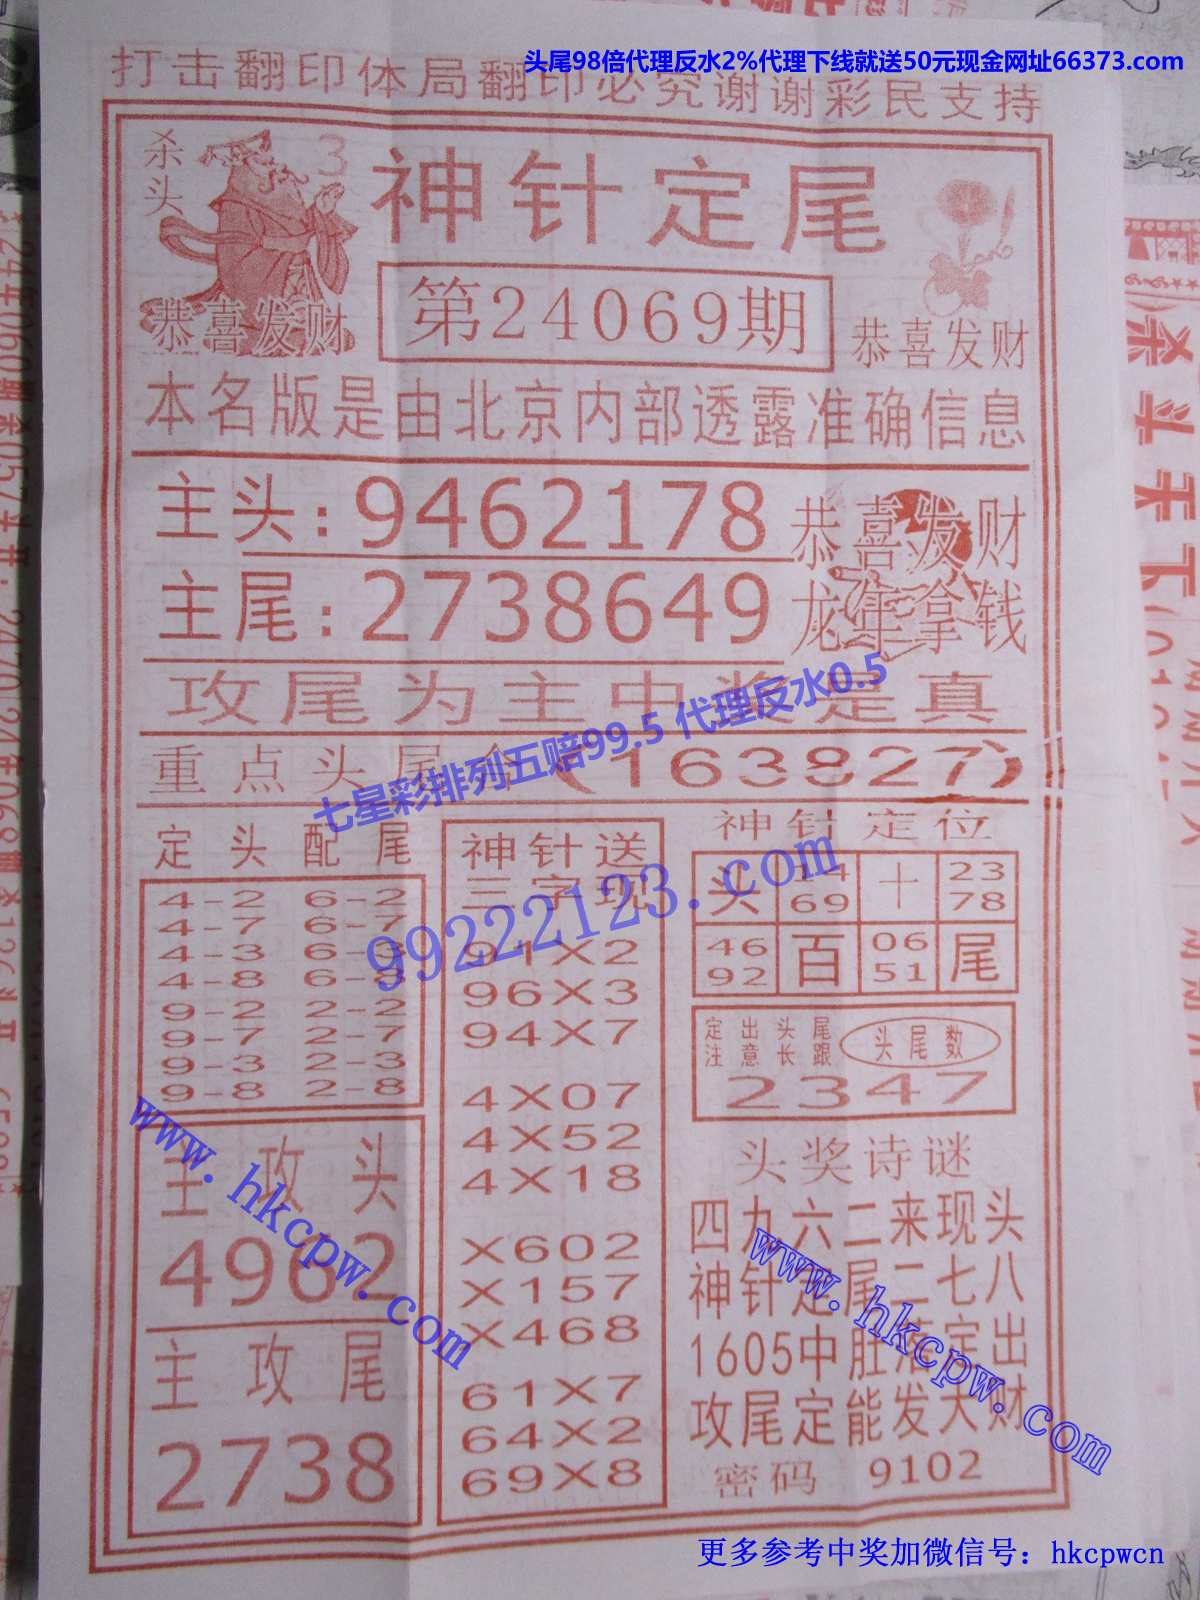 头尾98倍代理反水2%代理下线就送50元现金网址66373.com
打击翻印体局翻印必究谢谢彩民支持
杀头
3
神针定尾
恭喜发财
第24069期
恭喜发财
本名版是由北京内部透露准确信息
主头:9462178
恭喜发财
主尾:2738649
龙年拿钱
攻尾为主中奖是真
七星彩排列五赔99.5 代理反水0.5
重点头尾
(163827)
定头配尾
4-2 6-2
4-7 6-7
4-3 6-3
4-8 6-8
9-2 2-2
9-7 2-7
9-3 2-3
9-8 2-8
主攻头
4962
主攻尾
2738
神针送
三字现
99222123.com
91X2
96X3
94X7
4X07
4X52
4X18
X602
X157
X468
61X7
64X2
69X8
神针定位
头 14 十 23
69 78
46 百 06 尾
92 51
定出头尾
注意长跟
头尾数
2347
头奖诗谜
四九六二来现头
神针定尾二七八
1605中肚落定出
攻尾定能发大财
密码 9102
www.hkcpw.com
www.hkcpw.com
更多参考中奖加微信号：hkcpwcn